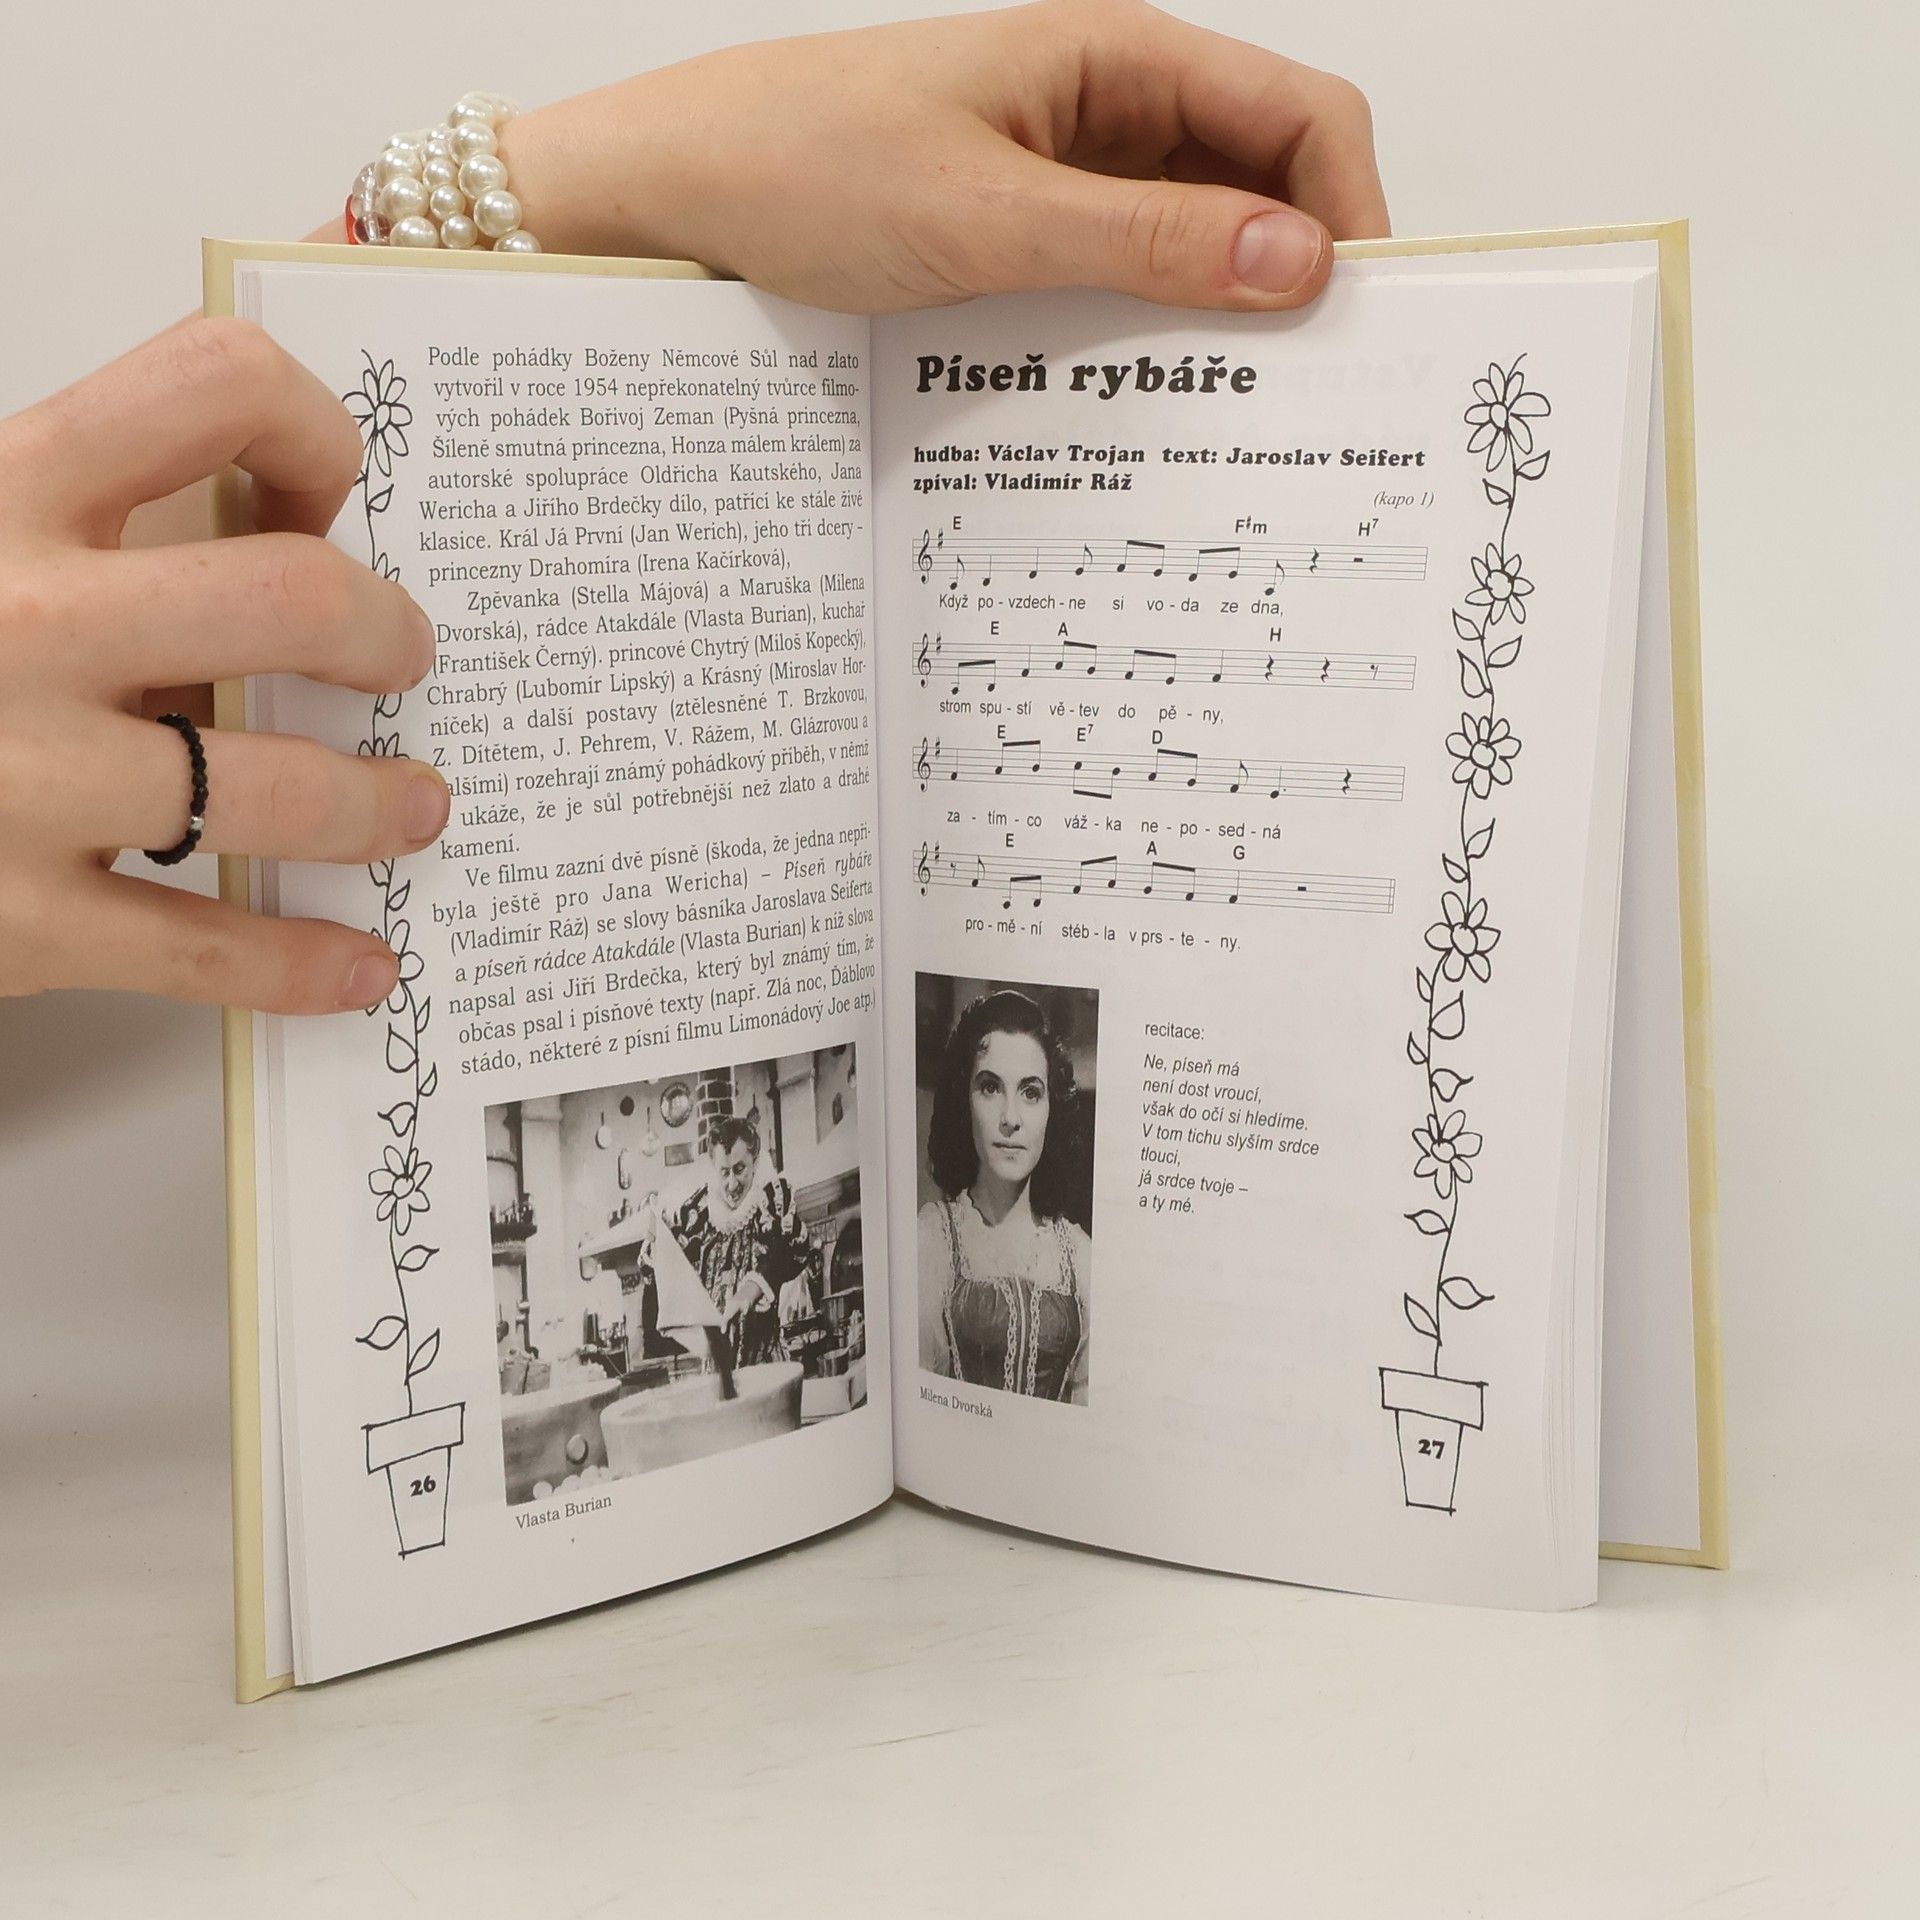 Podle pohádky Boženy Němcové Sůl nad zlato
vytvořil v roce 1954 nepřekonatelný tvůrce filmo-
vých pohádek Bořivoj Zeman (Pyšná princezna,
Šíleně smutná princezna, Honza málem králem) za
autorské spolupráce Oldřicha Kautského, Jana
Wericha a Jiřího Brdečky dílo, patřící ke stále živé
klasice. Král Já První (Jan Werich), jeho tři dcery -
princezny Drahomíra (Irena Kačírková),
Zpěvanka (Stella Májová) a Maruška (Milena
Dvorská), rádce Atakdále (Vlasta Burian), kuchař
(František Černý). princové Chytrý (Miloš Kopecký),
Chrabrý (Lubomír Lipský) a Krásný (Miroslav Hor-
níček) a další postavy (ztělesněné T. Brzkovou,
Z. Dítětem, J. Pehrem, V. Rážem, M. Glázrovou a
alšími) rozehrají známý pohádkový příběh, v němž
ukáže, že je sůl potřebnější než zlato a drahé
kamení.
Ve filmu zazní dvě písně (škoda, že jedna nepři-
byla ještě pro Jana Wericha) – Píseň rybáře
(Vladimír Ráž) se slovy básníka Jaroslava Seiferta
a píseň rádce Atakdále (Vlasta Burian) k níž slova
napsal asi Jiří Brdečka, který byl známý tím, že
občas psal i písňové texty (např. Zlá noc, Ďáblovo
stádo, některé z písní filmu Limonádový Joe atp.)
Vlasta Burian
26
Píseň rybáře
hudba: Václav Trojan text: Jaroslav Seifert
zpíval: Vladimír Ráž
(kapo 1)
E F#m H7
Když po - vzdech - ne si vo - da ze dna,
E A H
strom spu - stí vě - tev do pě - ny,
E E7 D
za - tím - co váž - ka ne - po - sed - ná
E A G
pro - mě - ní stéb - la v prs - te - ny.
recitace:
Ne, píseň má
není dost vroucí,
však do očí si hledíme.
V tom tichu slyším srdce
tlouci,
já srdce tvoje –
a ty mé.
Milena Dvorská
27